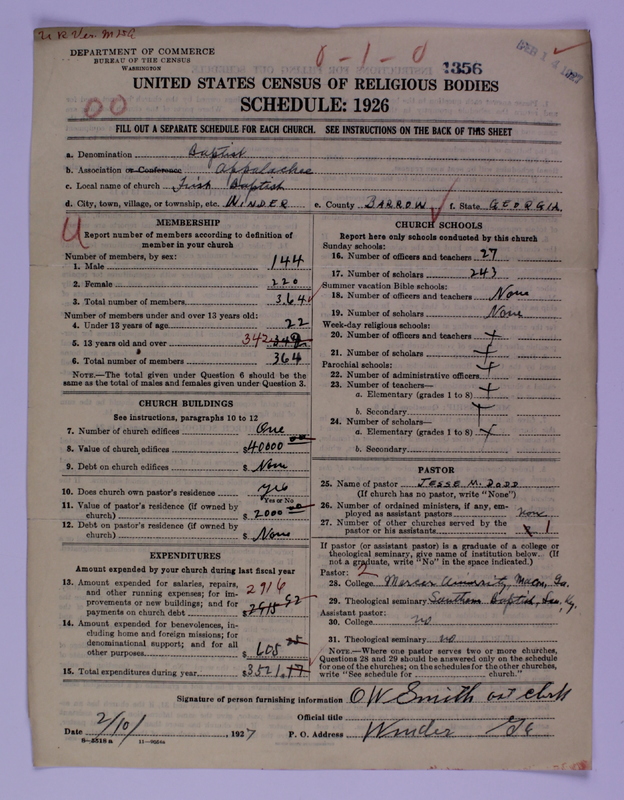 U R Ver. M&A
DEPARTMENT OF COMMERCE
BUREAU OF THE CENSUS
WASHINGTON
0-1-0
1356
FEB 14 1927
UNITED STATES CENSUS OF RELIGIOUS BODIES
SCHEDULE: 1926
00
FILL OUT A SEPARATE SCHEDULE FOR EACH CHURCH. SEE INSTRUCTIONS ON THE BACK OF THIS SHEET
a. Denomination Baptist
b. Association or Conference Appalachee
c. Local name of church First Baptist
d. City, town, village, or township, etc. WINDER e. County BARROW f. State GEORGIA
U
MEMBERSHIP
Report number of members according to definition of
member in your church
Number of members, by sex:
1. Male 144
2. Female 220
3. Total number of members 364
Number of members under and over 13 years old:
4. Under 13 years of age 22
5. 13 years old and over 342 342
6. Total number of members 364
NOTE.—The total given under Question 6 should be the
same as the total of males and females given under Question 3.
CHURCH BUILDINGS
See instructions, paragraphs 10 to 12
7. Number of church edifices One
8. Value of church edifices $40000 00
9. Debt on church edifices $ None
10. Does church own pastor's residence yes
Yes or No
11. Value of pastor's residence (if owned by
church) $ 2000 00
12. Debt on pastor's residence (if owned by
church) $ None
EXPENDITURES
Amount expended by your church during last fiscal year
13. Amount expended for salaries, repairs,
and other running expenses; for im-
provements or new buildings; and for
payments on church debt 2916 $2915 92
14. Amount expended for benevolences, in-
cluding home and foreign missions; for
denominational support; and for all
other purposes $ 605 25
15. Total expenditures during year $3521.17
CHURCH SCHOOLS
Report here only schools conducted by this church
Sunday schools:
16. Number of officers and teachers 27
17. Number of scholars 243
Summer vacation Bible schools:
18. Number of officers and teachers None
19. Number of scholars None
Week-day religious schools:
20. Number of officers and teachers
21. Number of scholars
Parochial schools:
22. Number of administrative officers
23. Number of teachers—
a. Elementary (grades 1 to 8)
b. Secondary
24. Number of scholars—
a. Elementary (grades 1 to 8)
b. Secondary
PASTOR
25. Name of pastor JESSE M. DODD
(If church has no pastor, write "None")
26. Number of ordained ministers, if any, em-
ployed as assistant pastors None
27. Number of other churches served by the
pastor or his assistants 1
If pastor (or assistant pastor) is a graduate of a college or
theological seminary, give name of institution below. (If
not a graduate, write "No" in the space indicated.)
Pastor: 2
28. College Mercer University, Macon, Ga.
29. Theological seminary Southern Baptist, Lou, Ky.
Assistant pastor:
30. College no
31. Theological seminary no
NOTE.—Where one pastor serves two or more churches,
Questions 28 and 29 should be answered only on the schedule
for one of the churches; on the schedules for the other churches,
write "See schedule for church."
Signature of person furnishing information O W Smith clerk
Official title
Date 2/10/ , 1927 P. O. Address Winder Ga
8—5518 a 11—9054a